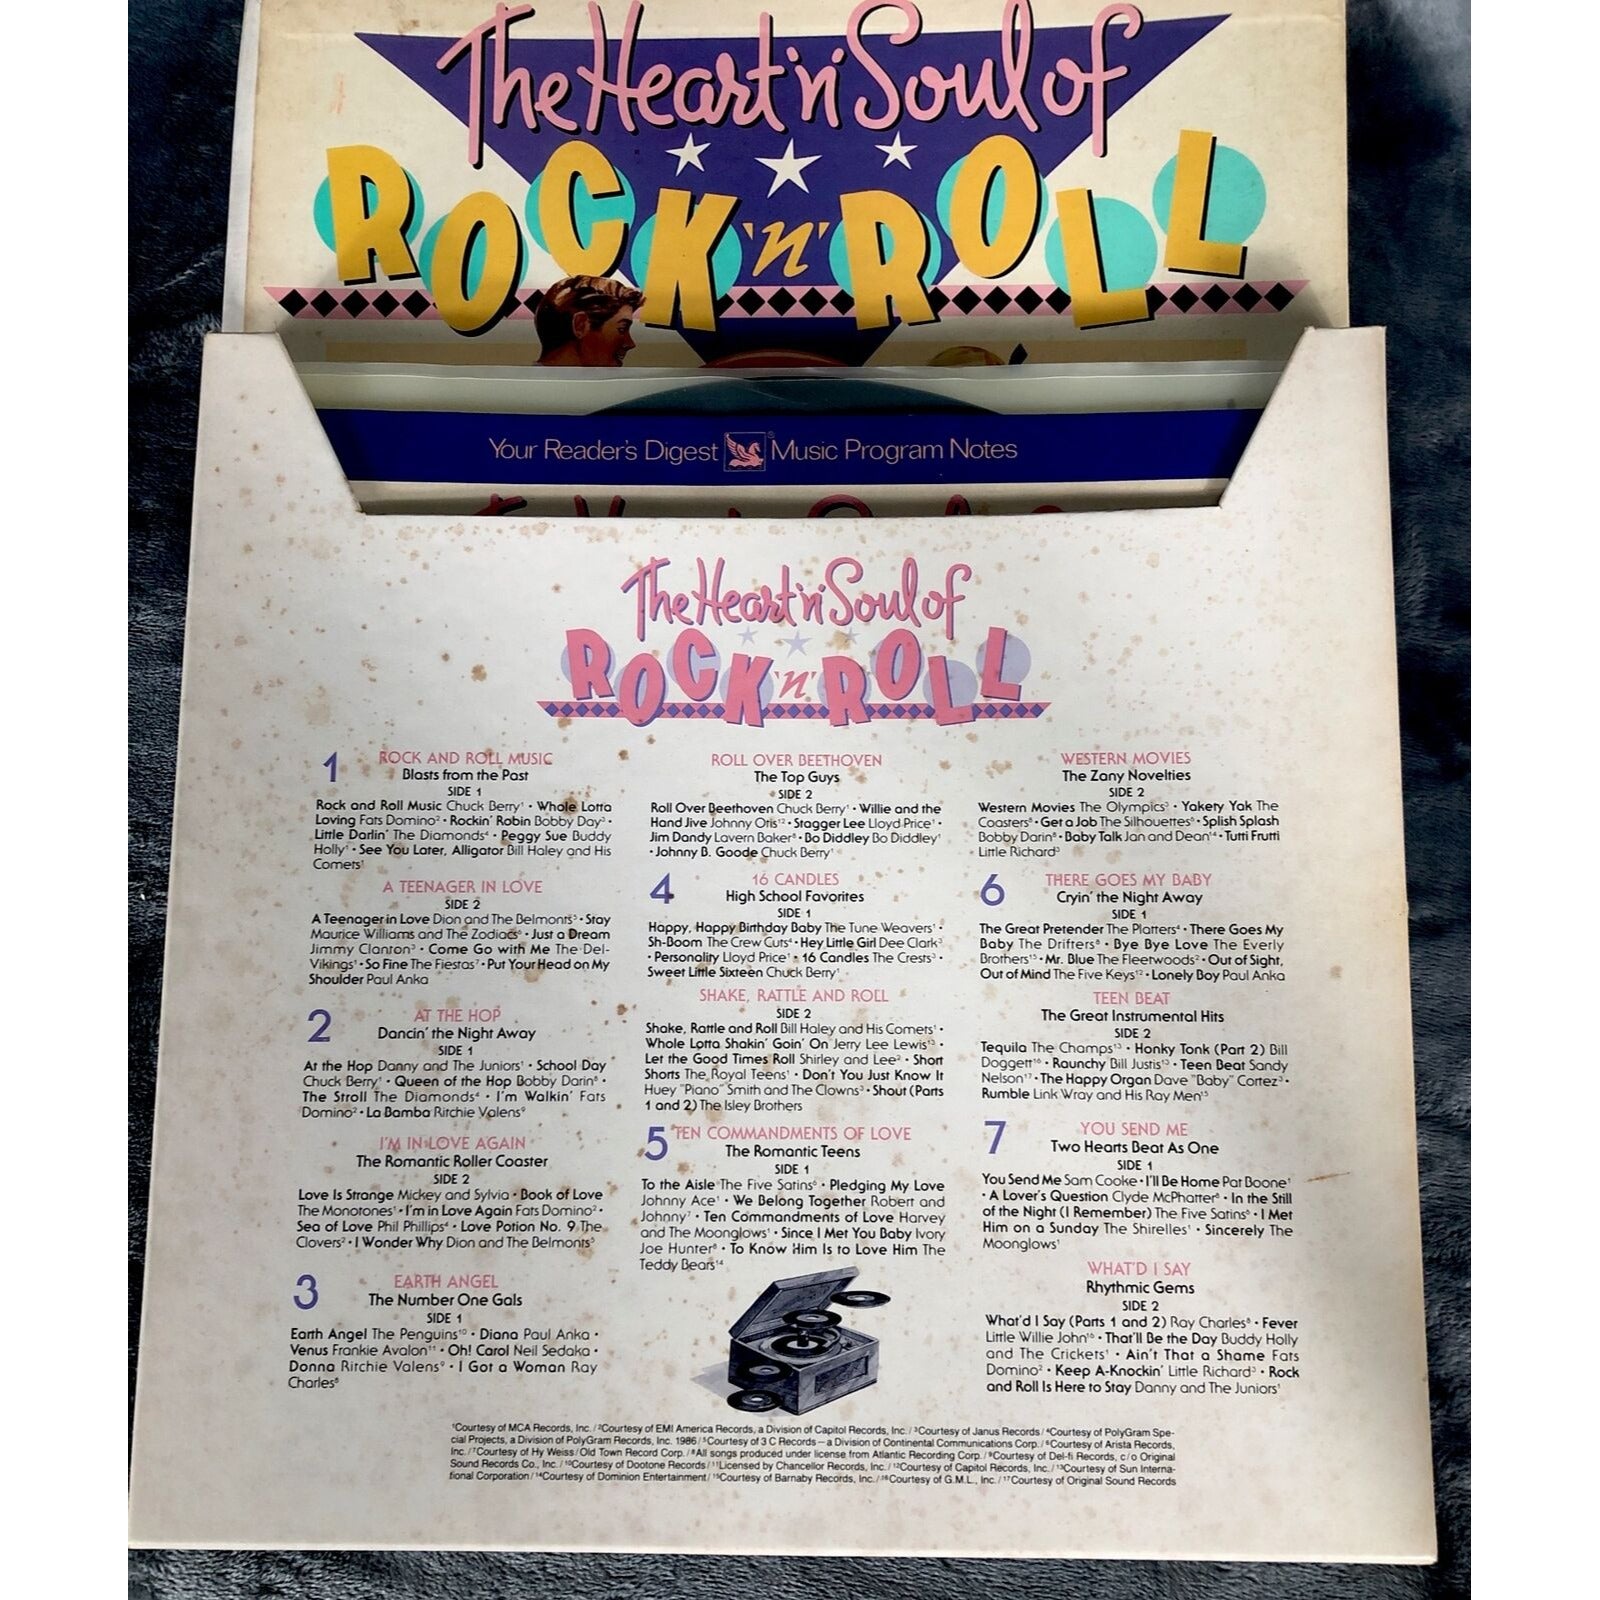 The Heart 'n' Soul of
ROCK 'n' ROLL
Your Reader's Digest ® Music Program Notes
The Heart 'n' Soul of
ROCK 'n' ROLL
1 ROCK AND ROLL MUSIC
Blasts from the Past
SIDE 1
Rock and Roll Music Chuck Berry¹ • Whole Lotta
Loving Fats Domino² • Rockin' Robin Bobby Day³ •
Little Darlin' The Diamonds⁴ • Peggy Sue Buddy
Holly¹ • See You Later, Alligator Bill Haley and His
Comets¹
A TEENAGER IN LOVE
SIDE 2
A Teenager in Love Dion and The Belmonts⁵ • Stay
Maurice Williams and The Zodiacs⁶ • Just a Dream
Jimmy Clanton³ • Come Go with Me The Del-
Vikings¹ • So Fine The Fiestas⁷ • Put Your Head on My
Shoulder Paul Anka
2 AT THE HOP
Dancin' the Night Away
SIDE 1
At the Hop Danny and The Juniors¹ • School Day
Chuck Berry¹ • Queen of the Hop Bobby Darin⁸ •
The Stroll The Diamonds⁴ • I'm Walkin' Fats
Domino² • La Bamba Ritchie Valens⁹
I'M IN LOVE AGAIN
The Romantic Roller Coaster
SIDE 2
Love Is Strange Mickey and Sylvia • Book of Love
The Monotones¹ • I'm in Love Again Fats Domino² •
Sea of Love Phil Phillips⁴ • Love Potion No. 9 The
Clovers² • I Wonder Why Dion and The Belmonts⁵
3 EARTH ANGEL
The Number One Gals
SIDE 1
Earth Angel The Penguins¹⁰ • Diana Paul Anka •
Venus Frankie Avalon¹¹ • Oh! Carol Neil Sedaka •
Donna Ritchie Valens⁹ • I Got a Woman Ray
Charles⁸
ROLL OVER BEETHOVEN
The Top Guys
SIDE 2
Roll Over Beethoven Chuck Berry¹ • Willie and the
Hand Jive Johnny Otis¹² • Stagger Lee Lloyd Price¹ •
Jim Dandy Lavern Baker⁸ • Bo Diddley Bo Diddley¹
• Johnny B. Goode Chuck Berry¹
4 16 CANDLES
High School Favorites
SIDE 1
Happy, Happy Birthday Baby The Tune Weavers¹ •
Sh-Boom The Crew Cuts⁴ • Hey Little Girl Dee Clark³
• Personality Lloyd Price¹ • 16 Candles The Crests³ •
Sweet Little Sixteen Chuck Berry¹
SHAKE, RATTLE AND ROLL
SIDE 2
Shake, Rattle and Roll Bill Haley and His Comets¹ •
Whole Lotta Shakin' Goin' On Jerry Lee Lewis¹³ •
Let the Good Times Roll Shirley and Lee² • Short
Shorts The Royal Teens¹ • Don't You Just Know It
Huey "Piano" Smith and The Clowns³ • Shout (Parts
1 and 2) The Isley Brothers
5 TEN COMMANDMENTS OF LOVE
The Romantic Teens
SIDE 1
To the Aisle The Five Satins⁶ • Pledging My Love
Johnny Ace¹ • We Belong Together Robert and
Johnny⁷ • Ten Commandments of Love Harvey
and The Moonglows¹ • Since I Met You Baby Ivory
Joe Hunter⁸ • To Know Him Is to Love Him The
Teddy Bears¹⁴
WESTERN MOVIES
The Zany Novelties
SIDE 2
Western Movies The Olympics³ • Yakety Yak The
Coasters⁸ • Get a Job The Silhouettes⁶ • Splish Splash
Bobby Darin⁸ • Baby Talk Jan and Dean¹⁴ • Tutti Frutti
Little Richard³
6 THERE GOES MY BABY
Cryin' the Night Away
SIDE 1
The Great Pretender The Platters⁴ • There Goes My
Baby The Drifters⁸ • Bye Bye Love The Everly
Brothers¹⁵ • Mr. Blue The Fleetwoods² • Out of Sight,
Out of Mind The Five Keys¹² • Lonely Boy Paul Anka
TEEN BEAT
The Great Instrumental Hits
SIDE 2
Tequila The Champs¹³ • Honky Tonk (Part 2) Bill
Doggett¹⁶ • Raunchy Bill Justis¹³ • Teen Beat Sandy
Nelson¹⁷ • The Happy Organ Dave "Baby" Cortez³ •
Rumble Link Wray and His Ray Men¹⁵
7 YOU SEND ME
Two Hearts Beat As One
SIDE 1
You Send Me Sam Cooke • I'll Be Home Pat Boone¹
• A Lover's Question Clyde McPhatter⁸ • In the Still
of the Night (I Remember) The Five Satins⁶ • I Met
Him on a Sunday The Shirelles¹ • Sincerely The
Moonglows¹
WHAT'D I SAY
Rhythmic Gems
SIDE 2
What'd I Say (Parts 1 and 2) Ray Charles⁸ • Fever
Little Willie John¹⁶ • That'll Be the Day Buddy Holly
and The Crickets¹ • Ain't That a Shame Fats
Domino² • Keep A-Knockin' Little Richard³ • Rock
and Roll Is Here to Stay Danny and The Juniors¹
¹Courtesy of MCA Records, Inc. / ²Courtesy of EMI America Records, a Division of Capitol Records, Inc. / ³Courtesy of Janus Records / ⁴Courtesy of PolyGram Spe-
cial Projects, a Division of PolyGram Records, Inc. 1986 / ⁵Courtesy of 3 C Records—a Division of Continental Communications Corp. / ⁶Courtesy of Arista Records,
Inc. / ⁷Courtesy of Hy Weiss/Old Town Record Corp. / ⁸All songs produced under license from Atlantic Recording Corp. / ⁹Courtesy of Del-fi Records, c/o Original
Sound Records Co., Inc. / ¹⁰Courtesy of Dootone Records / ¹¹Licensed by Chancellor Records, Inc. / ¹²Courtesy of Capitol Records, Inc. / ¹³Courtesy of Sun Interna-
tional Corporation / ¹⁴Courtesy of Dominion Entertainment / ¹⁵Courtesy of Barnaby Records, Inc. / ¹⁶Courtesy of G.M.L., Inc. / ¹⁷Courtesy of Original Sound Records